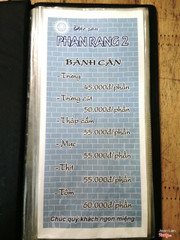 Đặc sản
PHAN RANG 2
BÁNH CĂN
- Trứng
45.000đ/phần
- Trứng cút
50.000đ/phần
- Thập cẩm
55.000đ/phần
- Mực
55.000đ/phần
- Thịt
55.000đ/phần
- Tôm
60.000đ/phần
Chúc quý khách ngon miệng